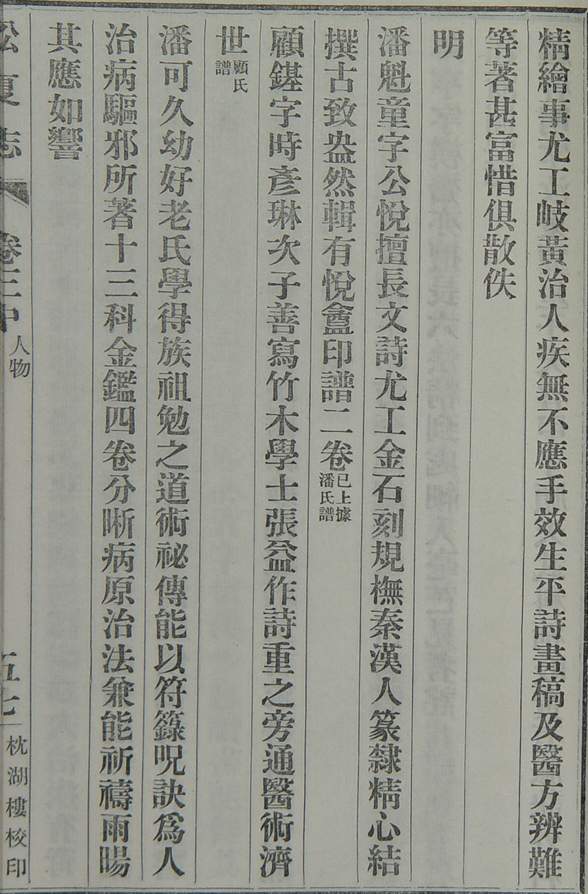 精繪事尤工岐黃治人疾無不應手效生平詩畫稿及醫方辨難
等著甚富惜俱散佚
明
潘魁童字公悅擅長文詩尤工金石刻規橅秦漢人篆隸精心結
撰古致盎然輯有悅盦印譜二卷已上據潘氏譜
顧鎡字時彥琳次子善寫竹木學士張益作詩重之旁通醫術濟
世顧氏譜
潘可久幼好老氏學得族祖勉之道術祕傳能以符籙呪訣爲人
治病驅邪所著十三科金鑑四卷分晰病原治法兼能祈禱雨暘
其應如響
松夏志 卷三中 人物 五七 枕湖樓校印